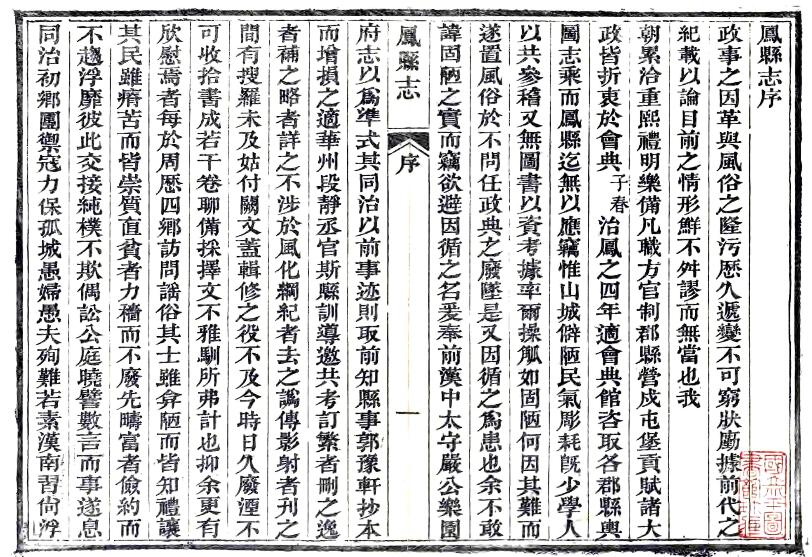 鳳縣志序
政事之因革與風俗之隆污歷久遞變不可窮狀廟據前代之
紀載以論目前之情形鮮不舛謬而無當也我
朝累洽重熙禮明樂備凡職方官制郡縣營戍屯堡貢賦諸大
政皆折衷於會典子春治鳳之四年適會典館咨取各郡縣輿
圖志乘而鳳縣迄無以應竊惟山城僻陋民氣彫耗旣少學人
以共參稽又無圖書以資考據率爾操觚如固陋何因其難而
遂置風俗於不問任政典之廢墜是又因循之爲患也余不敢
諱固陋之實而竊欲避因循之名爰奉前漢中太守嚴公樂園
鳳縣志 序 一
府志以爲準式其同治以前事迹則取前知縣事郭豫軒抄本
而增損之適華州段靜丞官斯縣訓導邀共考訂繁者刪之逸
者補之略者詳之不涉於風化綱紀者去之譌傳影射者刊之
間有搜羅未及姑付闕文蓋輯修之役不及今時日久廢湮不
可收拾書成若干卷聊備採擇文不雅馴所弗計也抑余更有
欣慰焉者每於周歷四鄉訪問謠俗其士雖弇陋而皆知禮讓
其民雖瘠苦而皆崇質直貧者力穡而不廢先疇富者儉約而
不趨浮靡彼此交接純樸不欺偶訟公庭曉譬數言而事遂息
同治初鄉團禦寇力保孤城愚婦愚夫殉難若素漢南習尙浮